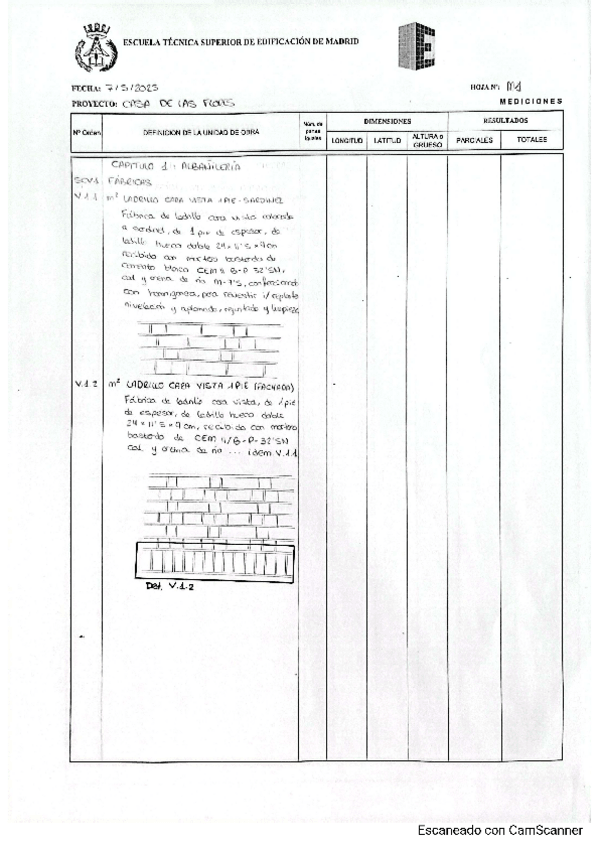 ESCUELA TÉCNICA SUPERIOR DE EDIFICACIÓN DE MADRID
FECHA: 7/5/2023
HOJA Nº: M1
PROYECTO: CASA DE LAS FLORES
MEDICIONES
Nº Orden
DEFINICION DE LA UNIDAD DE OBRA
Núm. de partes iguales
DIMENSIONES
RESULTADOS
LONGITUD
LATITUD
ALTURA o GRUESO
PARCIALES
TOTALES
CAPITULO 1: ALBAÑILERÍA
FÁBRICAS
V.1.1 m² LADRILLO CARA VISTA 1PIE-SARDINEL
Fábrica de ladrillo cara vista colocada
a sardinel, de 1 pie de espesor, de
ladrillo hueco doble 24 x 11'5 x 9 cm
recibido con mortero bastardo de
cemento blanco CEM II B-P 32'5N,
cal y arena de río M-7'5, confeccionado
con hormigonera, para revestir i/replanteo
nivelación y aplomado, rejuntado y limpieza
V.1.2 m² LADRILLO CARA VISTA 1PIE (FACHADA)
Fábrica de ladrillo cara vista, de 1 pie
de espesor, de ladrillo hueco doble
24 x 11'5 x 9 cm, recibido con mortero
bastardo de CEM II/B-P-32'5N
cal y arena de río ... idem V.1.1
Det. V.1.2
Escaneado con CamScanner